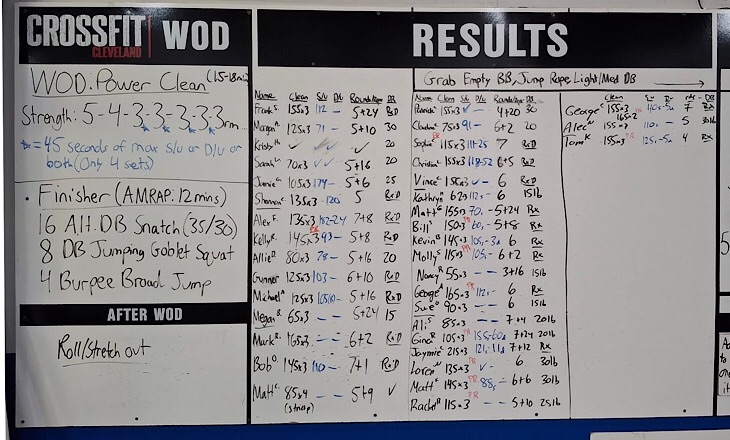 CROSSFIT
CLEVELAND
WOD
RESULTS
WOD: Power Clean (15-18min)
Strength: 5-4-3-3-3-3-3rm
= 45 seconds of max S/u or D/u or
both (Only 4 sets)
• Finisher (AMRAP: 12 mins)
16 Alt. DB Snatch (35/30)
8 DB Jumping Goblet Squat
4 Burpee Broad Jump
AFTER WOD
Roll/Stretch out
Name Clean S/u D/u Rounds/reps DB
Frank 155x3 112 - 5+24 RxD
Morgan 125x3 71 - 5+10 30
Kristy 20
Sarah 70x3 5+16 20
Jamie 105x3 174 - 5+6 25
Shannon 135x3 - 120 5 RxD
Alex F. 135x3 182-24 7+8 RxD
Kelly 145x3 93 - 5+8 RxD
Allie 80x3 78 - 5+16 20
Gunner 125x3 103 - 6+10 RxD
Michael 125x3 - 5+16 RxD
Megan 65x3 - - 5+24 15
Mark 165x3 - - 6+2 RxD
Bob 145x3 110 - 7+1 RxD
Matt 85x4 - - 5+9 ✓
(strap)
Grab Empty BB, Jump Rope, Light/Med DB
Name Clean S/u D/u Rounds/reps DB
Patrick 155x3 - 4+20 30
Claudine 75x3 91 - 6+2 20
Sophie 115x3 111-25 7 RxD
Christian 155x3 118-52 6+5 RxD
Vince 155x3 ✓ - 6 RxD
Kathryn 62x3 112 - 6 15lb
Matt 155x3 70 - 5+24 Rx
Bill 150x3 PR 60 - 5+8 Rx
Kevin 145x3 105 - 6 Rx
Molly 115x3 PR 105 - 6+2 Rx
Nancy 55x3 - - 3+16 15lb
George 165x3 PR 112 - 6 Rx
Sue 90x3 - - 6 15lb
Ali 85x3 - - 7+4 20lb
Gina 105x3 PR 155-60 7+24 20lb
Jaymie 215x3 121-11 7+12 Rx
Loren 135x3 PR ✓ - 6 30lb
Matt 145x3 PR 85 - 6+6 30lb
Rachel 115x3 PR - - 5+10 25lb
Clean S/u DB
George 155x3 7 Rx
165x2
Alec 155x3 110 - 5 30lb
Tom 155x3 4 Rx